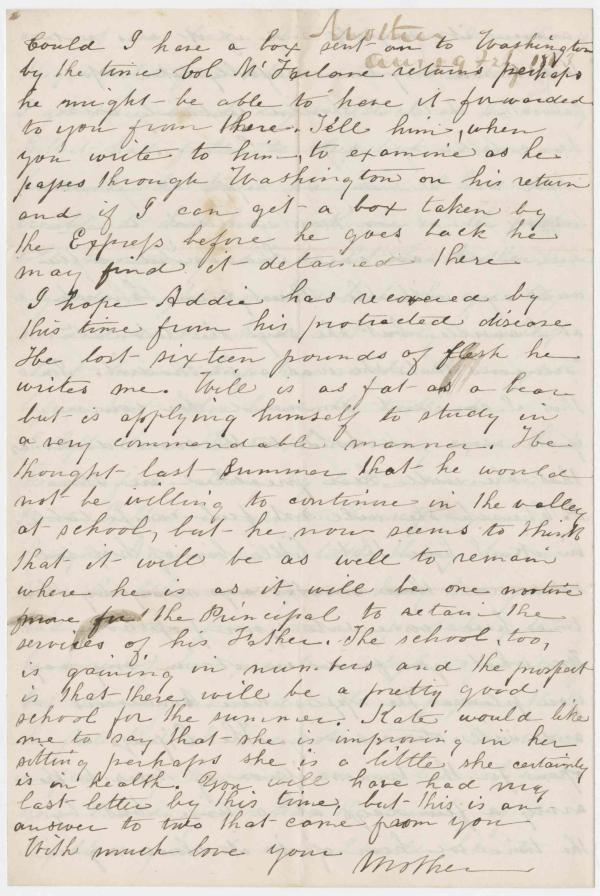 Mother
Could I have a box sent on to Washington
by the time Col McFarlane returns perhaps
he might be able to have it forwarded
to you from there. Tell him, when
you write to him, to examine as he
passes through Washington on his return
and if I can get a box taken by
the Express before he goes back he
may find it detained there
I hope Addie has recovered by
this time from his protracted disease
He lost sixteen pounds of flesh he
writes me. Will is as fat as a bear
but is applying himself to study in
a very commendable manner. He
thought last summer that he would
not be willing to continue in the valley
at school, but he now seems to think
that it will be as well to remain
where he is as it will be one motive
more for the Principal to retain the
services of his Father. The school, too,
is gaining in numbers and the prospect
is that there will be a pretty good
school for the summer. Kate would like
me to say that she is improving in her
sitting perhaps she is a little she certainly
is in health. You will have had my
last letter by this time, but this is an
answer to two that came from you
With much love your
Mother